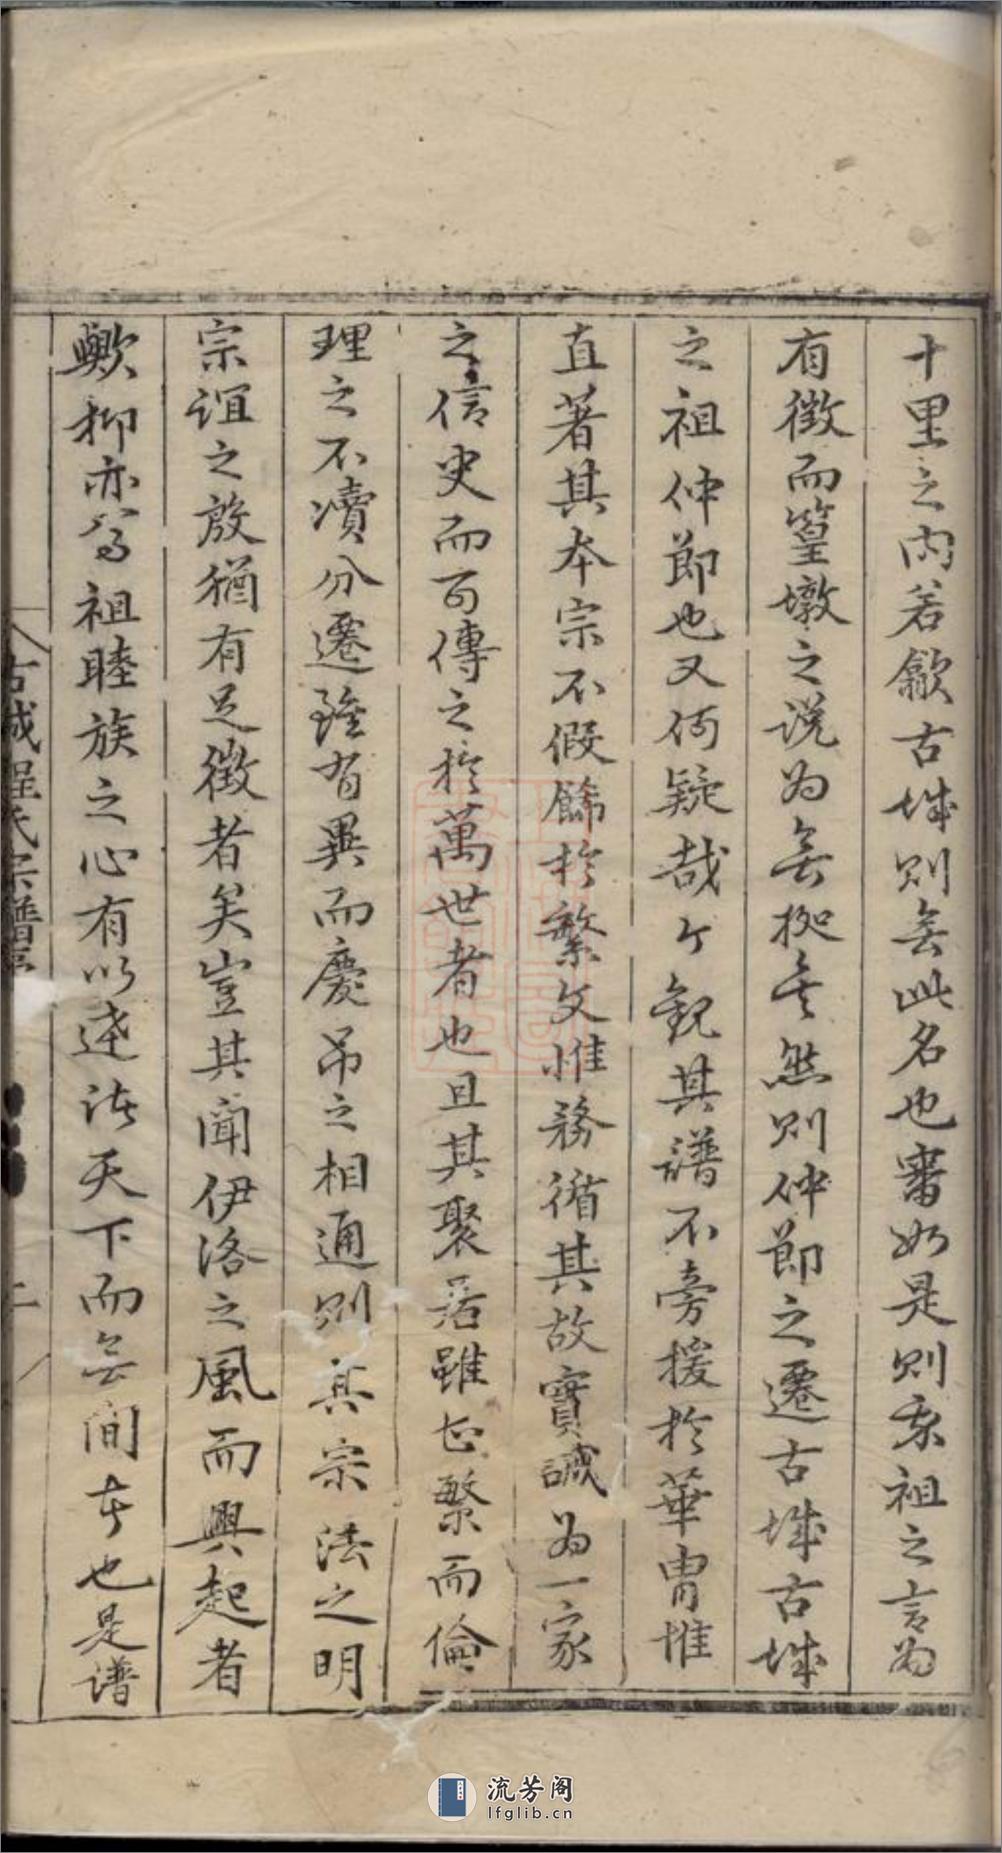 十里之內若歙古城則無此名也審如是則系祖之言為
有徵而篁墩之說為無據矣然則仲節之遷古城古城
之祖仲節也又何疑哉今觀其譜不旁援於華胄惟
直著其本宗不假餙於繁文惟務循其故實誠為一家
之信史而可傳之於萬世者也且其聚居雖甚繁而倫
理之不凟分遷雖有異而慶吊之相通則其宗法之明
宗誼之敦猶有足徵者矣豈其聞伊洛之風而興起者
歟抑亦尊祖睦族之心有以達諸天下而無間者也是譜
古城程氏宗譜序
二
流芳阁
lfglib.cn